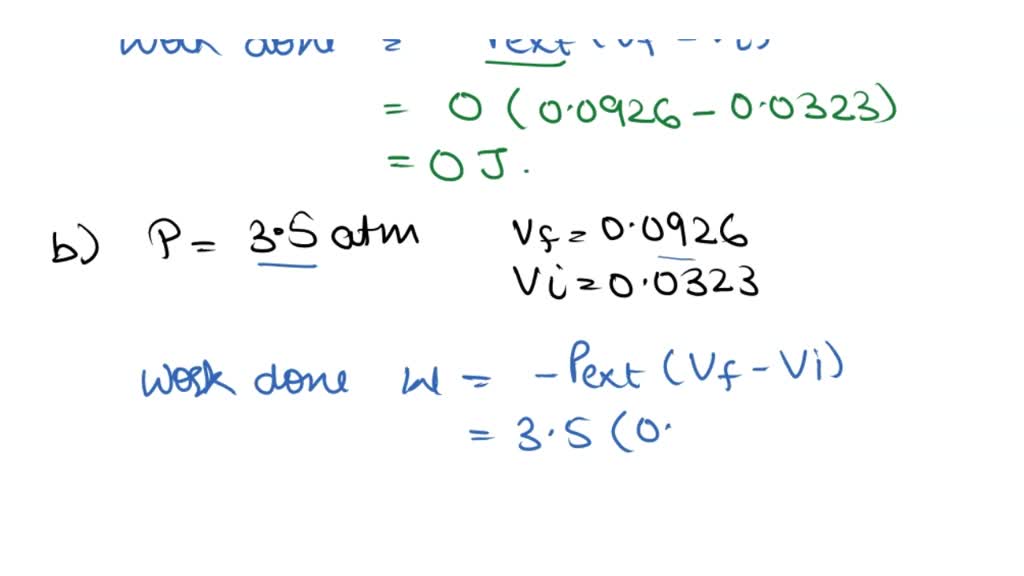 work done = Pext (Vf - Vi)
= 0 (0.0926 - 0.0323)
= 0 J.
b) P = 3.5 atm Vf = 0.0926
Vi = 0.0323
work done W = - Pext (Vf - Vi)
= 3.5 (0.